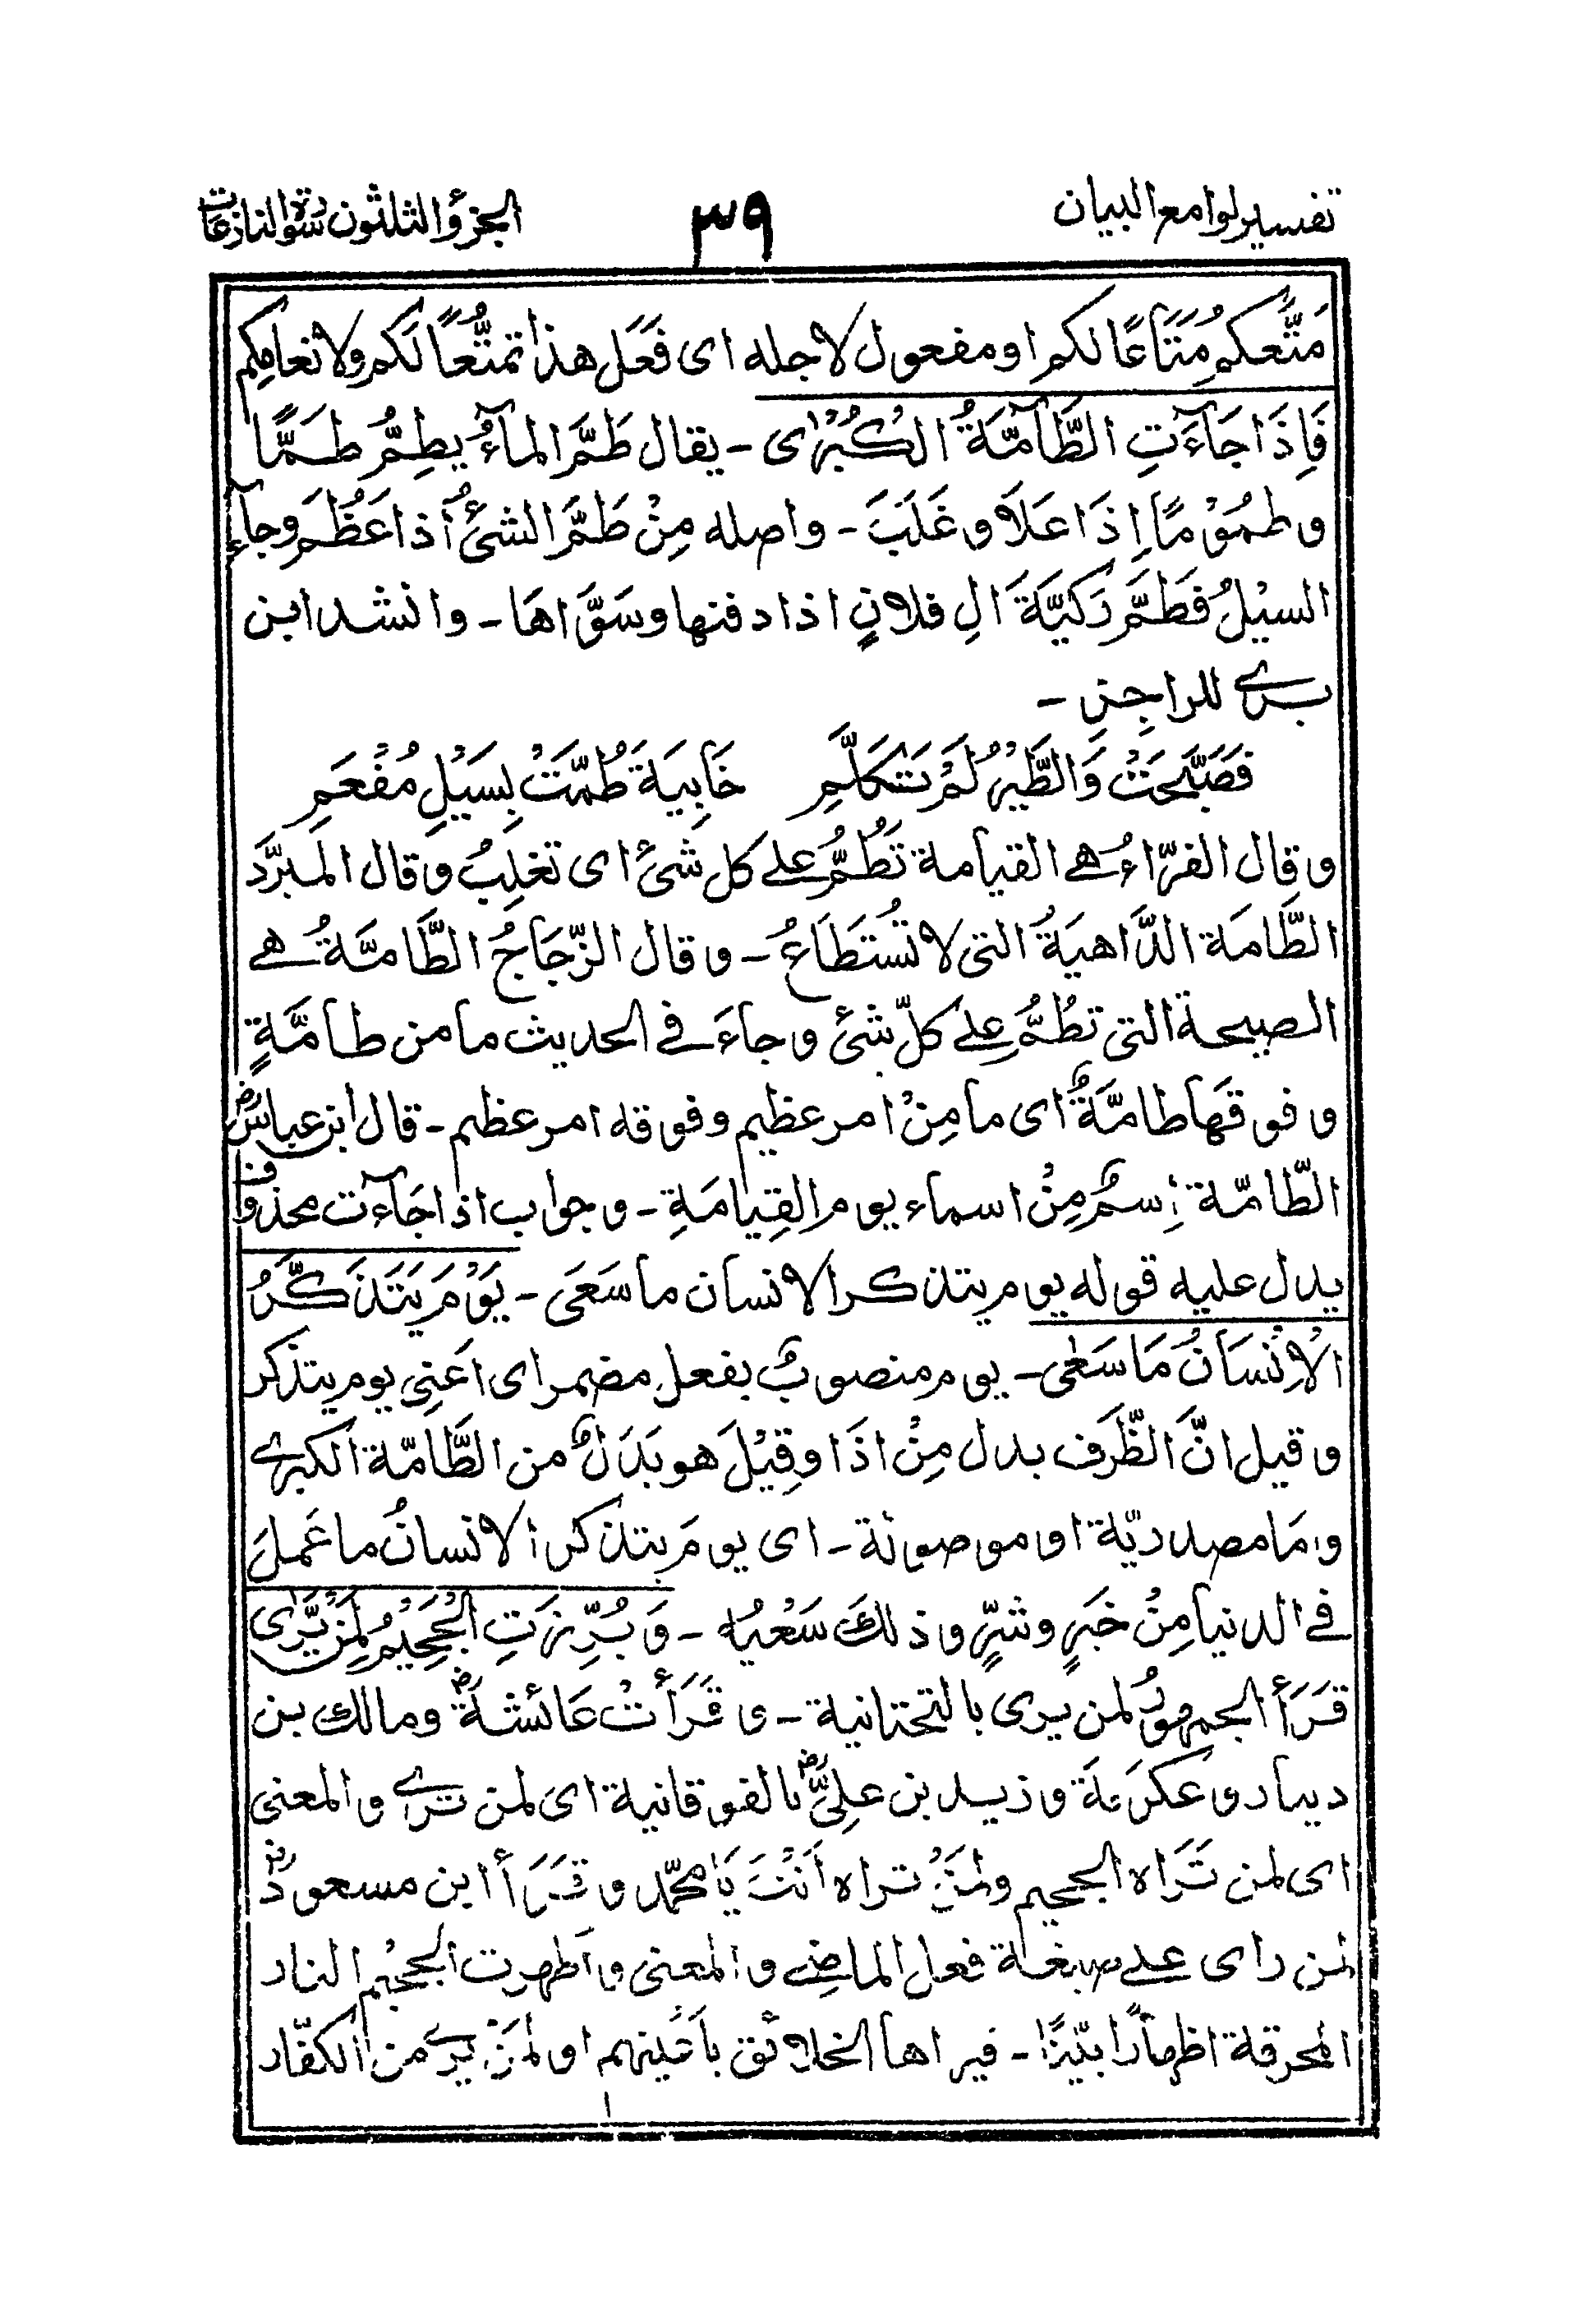 تفسير لوامع البيان
٣٩
الجزؤ الثلثون سورة النازعات
مَتَّعكم مَتَاعًا لكم او مفعول لاجله اى فَعَل هذا تمتُّعًا لَكم ولانعامِكم
فَاِذَا جَآءَتِ الطَّآمَّةُ الكُبْرٰى - يقال طَمَّ المآءُ يطِمُّ طَمًّا
و طمُوْمًا اِذَا عَلَا و غَلَبَ - واصله مِنْ طَمَّ الشئُ اُذا عَظُمَ وجآءِ
السيْلُ فَطَمَّ رَكيَّةَ الِ فلانٍ اذا دفنها وسَوَّاهَا - وانشد ابن
برے للراجِزِ -
فَصَبَّحَتْ وَالطَّيْرُ لَمْ تَتَكَلَّمِ خَابِيَةَ طُمَّتْ بِسَيْلِ مُفْعَمِ
و قال الفرّاءُ هے القيامة تَطُمُّ علے كل شئ اى تغلِبُ و قال المبرَّد
الطَّامَة الدَّاهيَةُ التى لا تُستَطَاعُ - و قال الزَّجَاجُ الطَّامَّةُ هے
الصيحة التى تطُمُّ علے كلّ شئ و جاءَ فے الحديث ما من طامَّةٍ
و فوقَها طامَّةٌ اى ما مِنْ امر عظيم و فوقه امر عظيم - قال ابن عباسؓ
الطّامّة اِسمٌ مِنْ اسماء يوم القِيامَةِ - و جواب اذا جَآءَت محذوف
يدل عليه قوله يوم يتذكر الانسان ما سَعَى - يَوْمَ يَتَذَكَّرُ
الْاِنْسَانُ مَا سَعٰى - يوم منصوبٌ بفعل مضمر اى اعَنِى يوم يتذكر
و قيل انَّ الظَّرف بدل مِنْ اذَا و قِيْلَ هو بَدَلٌ من الطَّامّة الكبرے
و مَا مصدريّة او موصولة - اى يومَ يتذكر الانسانُ ما عَمِلَ
فے الدنيا مِنْ خَيرٍ و شرٍّ و ذلكَ سَعْيُه - وَ بُرِّزَتِ الْجَحِيْمُ لِمَنْ يَّرٰى
قَرَأ الجمهورُ لمن يرى بالتحتانية - و قَرَأتْ عَائشةَؓ و مالك بن
دينار و عكرمَةَ و زيد بن علِىٍّؓ بالفوقانية اى لمن ترے و المعنى
اى لمن تَرَاه الجحيم و لمَنْ تراه اَنْتَ يَا محمّد و قَرَأ ابن مسعودؓ
لمن راى علے صيغة فعل الماضے و المعنى و اَظهرت الجحيْم النار
المحرقة اظهارًا بيّنًا - فيراها الخلائق باَعْينهم او لمَنْ يرے من الكفّار